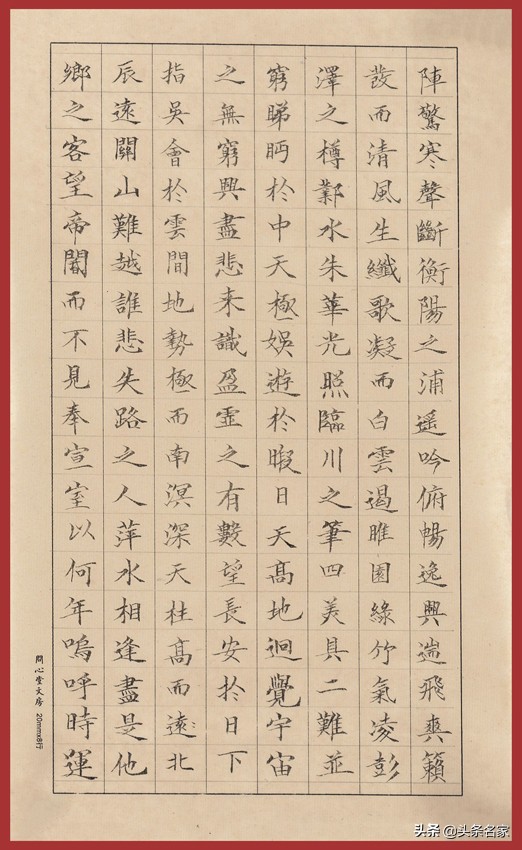 陣驚寒聲斷衡陽之浦遥吟俯暢逸興遄飛爽籟
發而清風生纖歌凝而白雲遏睢園綠竹氣凌彭
澤之樽鄴水朱華光照臨川之筆四美具二難並
窮睇眄於中天極娛遊於暇日天髙地迥覺宇宙
之無窮興盡悲来識盈虛之有數望長安於日下
指吳會於雲間地勢極而南溟深天柱髙而遠北
辰遠關山難越誰悲失路之人萍水相逢盡是他
鄉之客望帝閽而不見奉宣室以何年嗚呼時運
問心堂文房 20mmx8行
头条 @头条名家